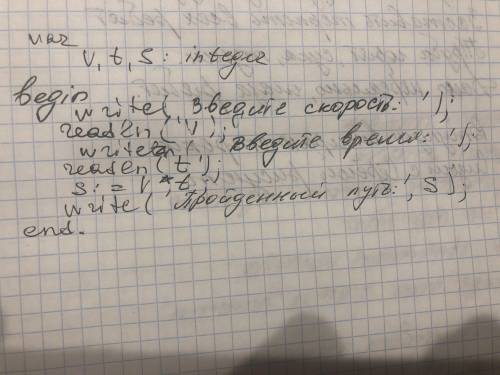 var
v, t, s : integer
begin
write( 'Введите скорость: ');
readln ('v');
write( 'Введите время: ');
readln ('t');
s: = v * t;
write( 'Пройденный путь:', s);
end.